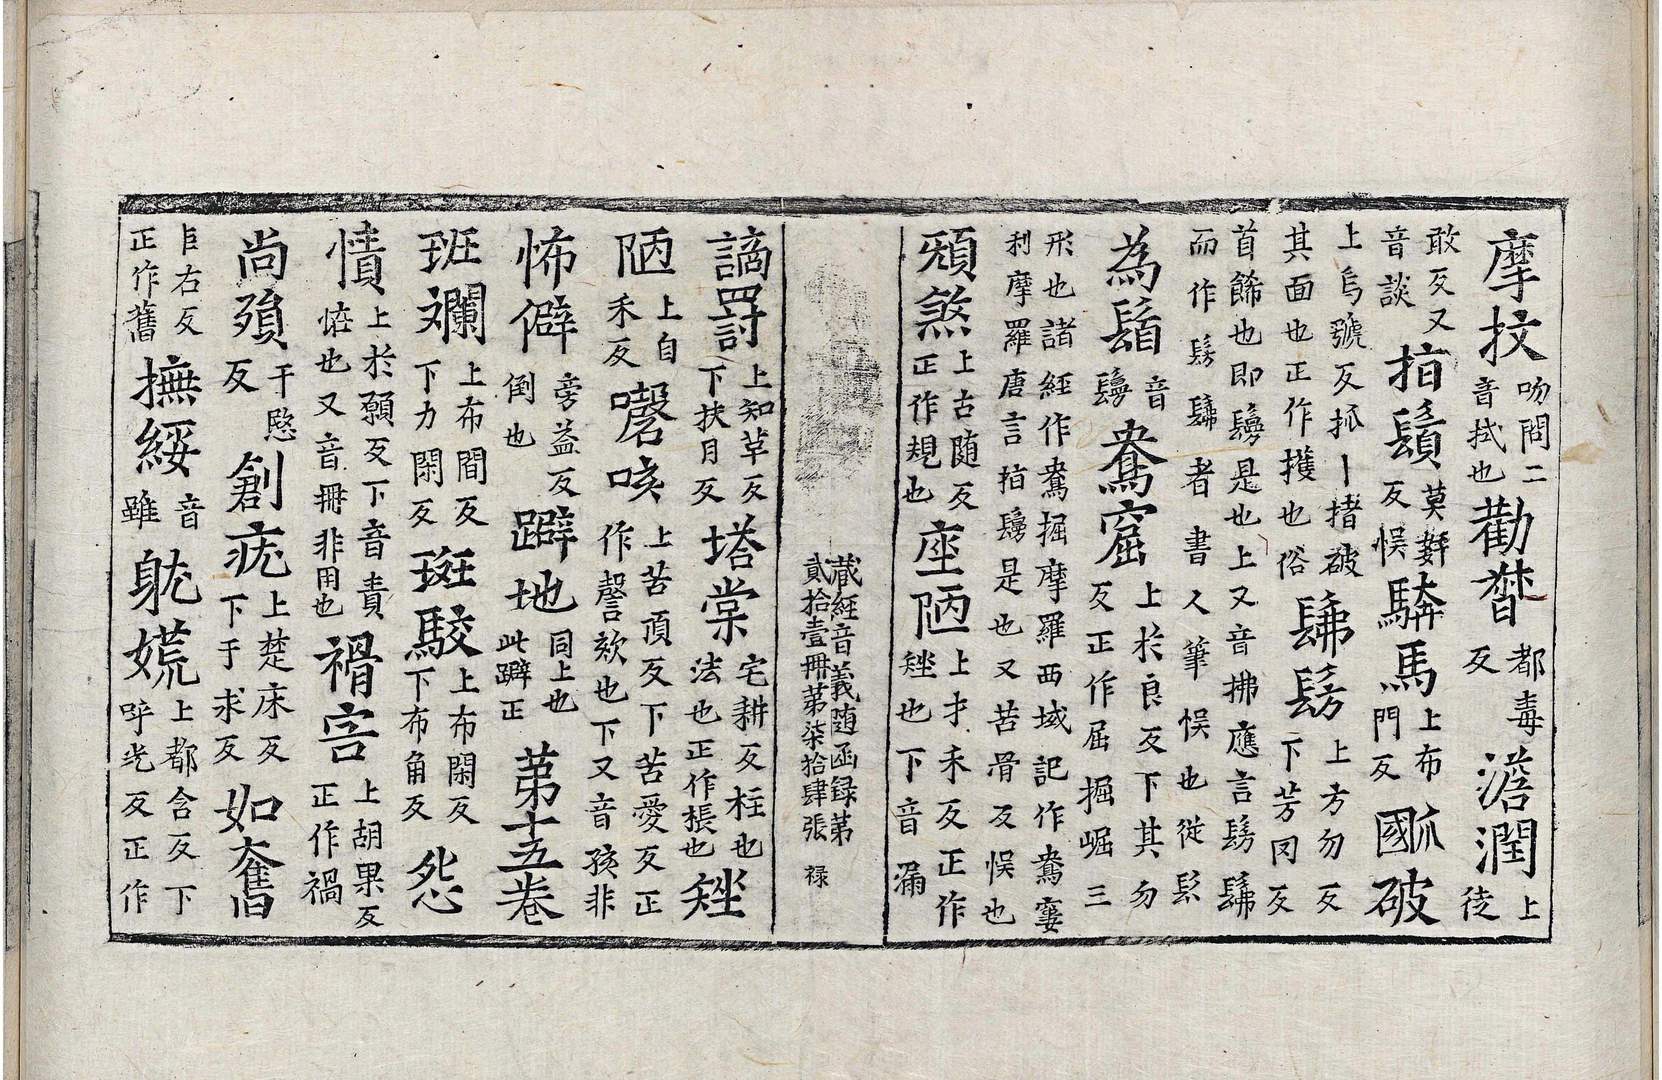 摩抆吻問二音拭也勸㮙都毒反澹潤上徒
敢反又音談指鬚莫䡬反悮䮫馬上布門反㼌破
上烏號反抓丨㨋破其面也正作擭也俗髴髣上方勿反下芳罔反
首飾也即鬘是也上又音拂應言髣髴而作髣髴者書人筆悮也從髟
為鬚音鬘鴦窟上於良反下其勿反正作屈掘崛三
形也諸經作鴦掘摩羅西域記作鴦窶利摩羅唐言指鬘是也又苦骨反悮也
䫌煞上古随反正作規也座陋上才禾反正作矬也下音漏
藏經音義随函録第貳拾壹冊第柒拾肆張 禄
謫罰上知革反下扶月反塔棠宅耕反柱也法也正作棖也矬
陋上自禾反磬咳上苦頂反下苦愛反正作謦欬也下又音孩非
怖僻旁益反倒也躃地同上也此躃正第十五卷
班斕上布間反下力閑反斑駮上布閑反下布角反怨
憒上於願反下音責恠也又音冊非用也禍害上胡果反正作禍
尚殞于愍反創疣上楚床反下于求反如奮
𦣞右反正作舊撫綏音雖躭㛬上都含反下呼光反正作